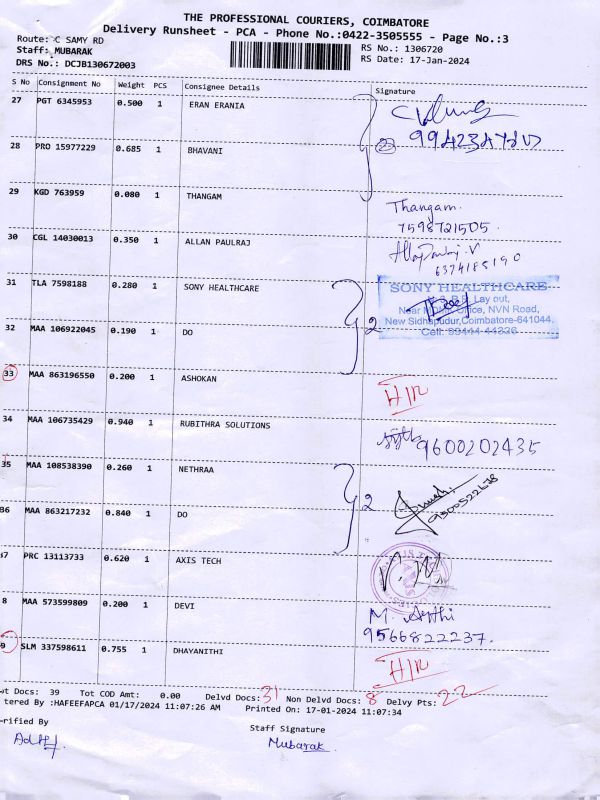 THE PROFESSIONAL COURIERS, COIMBATORE
Delivery Runsheet - PCA - Phone No.:0422-3505555 - Page No.:3
Route: C SAMY RD
RS No.: 1306720
Staff: MUBARAK
RS Date: 17-Jan-2024
DRS No.: DCJB130672003
S No Consignment No Weight PCS Consignee Details Signature
27 PGT 6345953 0.500 1 ERAN ERANIA
28 PRO 15977229 0.685 1 BHAVANI 2
29 KGD 763959 0.080 1 THANGAM Thangam.
7598721505.
30 CGL 14030013 0.350 1 ALLAN PAULRAJ
6374185190
31 TLA 7598188 0.280 1 SONY HEALTHCARE SONY HEALTHCARE
Lay out,
Office, NVN Road,
32 MAA 106922045 0.190 1 DO 2 New Sidhapudur,Coimbatore-641044.
Cell: 99444 44336
33 MAA 863196550 0.200 1 ASHOKAN H/R
34 MAA 106735429 0.940 1 RUBITHRA SOLUTIONS 9600202435
35 MAA 108538390 0.260 1 NETHRAA 2
36 MAA 863217232 0.840 1 DO
37 PRC 13113733 0.620 1 AXIS TECH
8 MAA 573599809 0.200 1 DEVI M. Arthi
9566822237.
9 SLM 337598611 0.755 1 DHAYANITHI H/R
ot Docs: 39 Tot COD Amt: 0.00 Delvd Docs: 31 Non Delvd Docs: 8 Delvy Pts: 22
tered By :HAFEEFAPCA 01/17/2024 11:07:26 AM Printed On: 17-01-2024 11:07:34
erified By
Staff Signature
Mubarak.